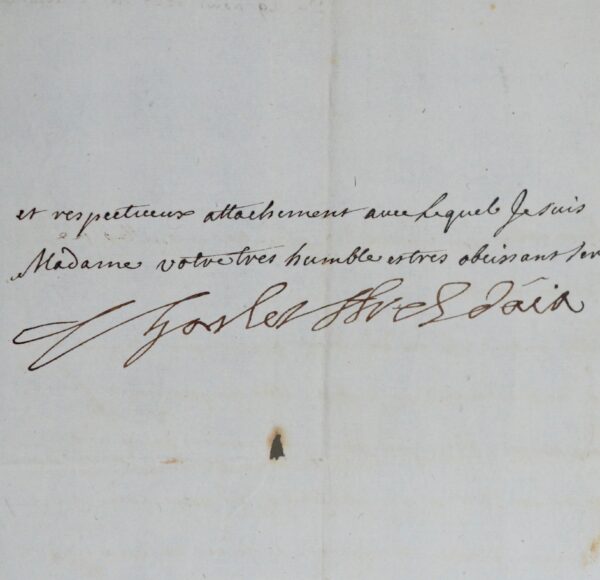 et respectueux attachement avec lequel Je suis
Madame votre tres humble et tres obeissant ser
Charles Arch d'aix